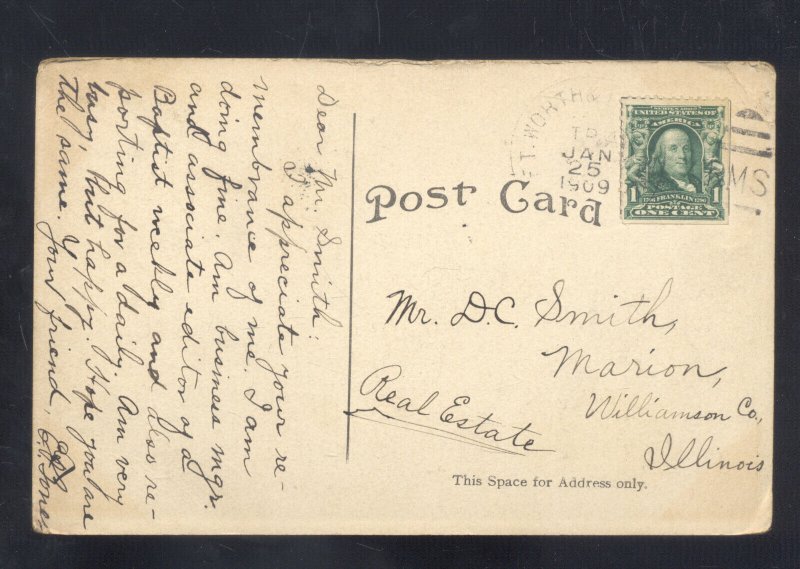 Dear Mr. Smith:
I appreciate your re-
membrance of me. I am
doing fine. Am business mgr.
and associate editor of a
Baptist weekly and also re-
porting for a daily. Am very
busy but happy. Hope you are
the same.
Your friend,
Jones
FT. WORTH
JAN
25
1909
RMS
SERIES 1902
UNITED STATES OF
AMERICA
1 FRANKLIN 1
POSTAGE
ONE CENT
Post Card
Mr. D.C. Smith,
Marion,
Williamson Co.,
Illinois
Real Estate
This Space for Address only.